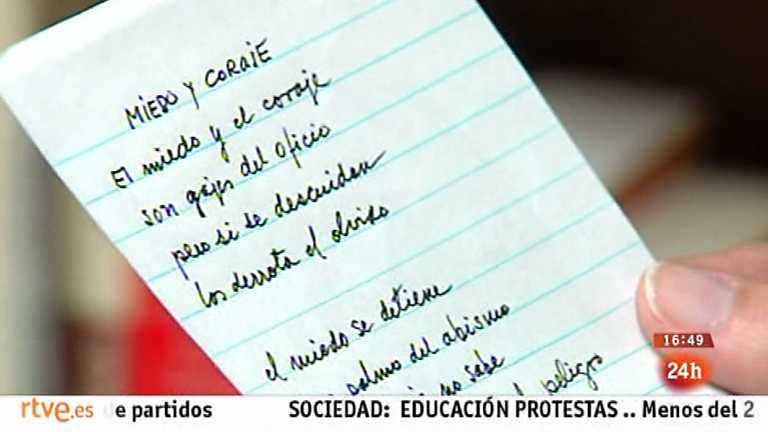 MIEDO Y CORAJE
El miedo y el coraje
son gajes del oficio
pero si se descuidan
los derrota el olvido
el miedo se detiene
palmo del abismo
no sabe
el peligro
16:49
24h
rtve.es de partidos SOCIEDAD: EDUCACIÓN PROTESTAS .. Menos del 2